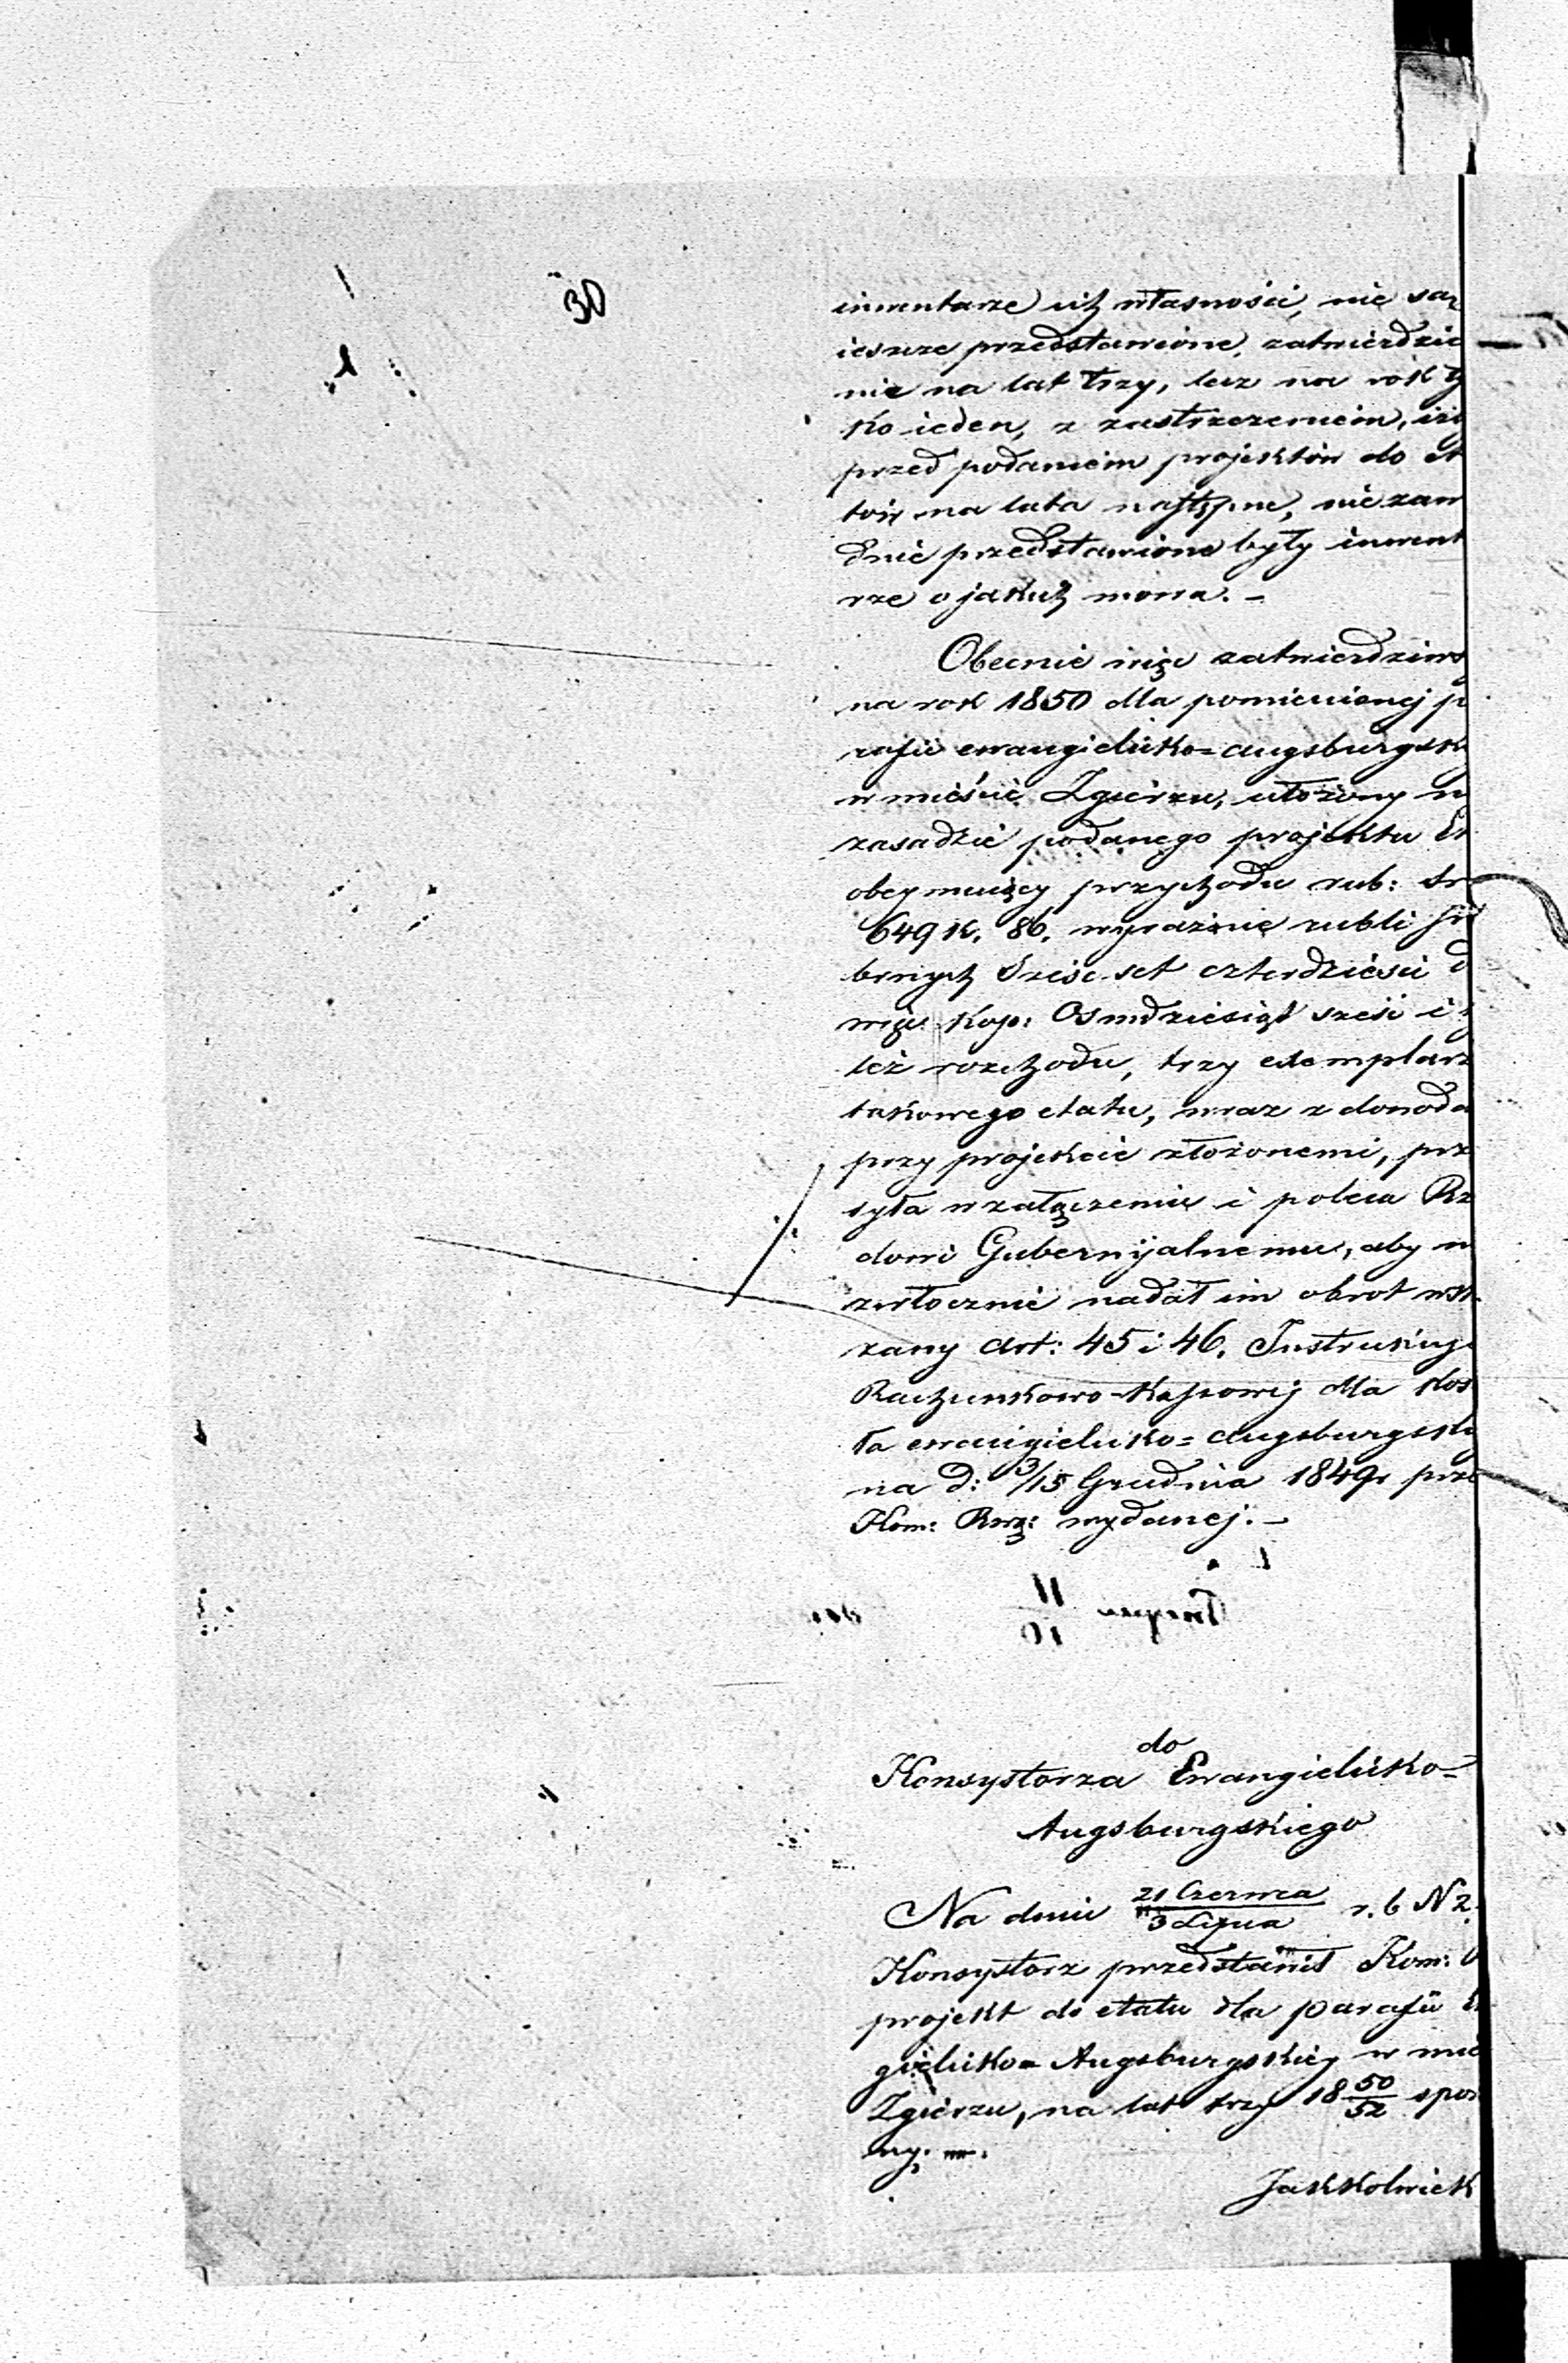 30
inwentarze ich własności, nie są
ieszcze przedstawione, zatwierdzić
nie na lat trzy, lecz na rok ty
ko ieden, z zastrzeżeniem, iżi
przed podaniem projektów do et
tów na lata następne, niezaw
dnie przedstawione były inwent
rze o jakich mowa. –
Obecnie więc zatwierdziws
na rok 1850 dla pomienionej p
rafii ewangielicko=augsburgski
w mieście Zgierzu, ułożony n
zasadzie podanego projektu Et
obeymuiący przychodu rub: sr
649 k. 86. wyraźnie rubli sre
brnych Sześćset czterdzieści d
więć kop: Osmdziesiąt sześć i t
leż rozchodu, trzy exemplarz
takowego etatu, wraz z dowoda
przy projekcie złożonemi, prz
syła w załączeniu i poleca Rz
dowi Gubernijalnemu, aby n
zwłocznie nadał im obrot wsk
zany art: 45 i 46. Instrukcyi
Rachunkowo-Kassowej dla Koś
ła ewangielicko=augsburgski
na d: 3/15 Grudnia 1849r prze
Kom: Rzą: wydanej. –
do
Konsystorza Ewangielicko=
Augsburgskiego
Na dniu 21 Czerwca / 3 Lipca r. b N 2.
Konsystorz przedstawił Kom:
projekt do etatu dla parafii E
gielicko=Augsburgskiej w mie
Zgierzu, na lat trzy 18 50/52 spor
ny. –
Jakkolwiek